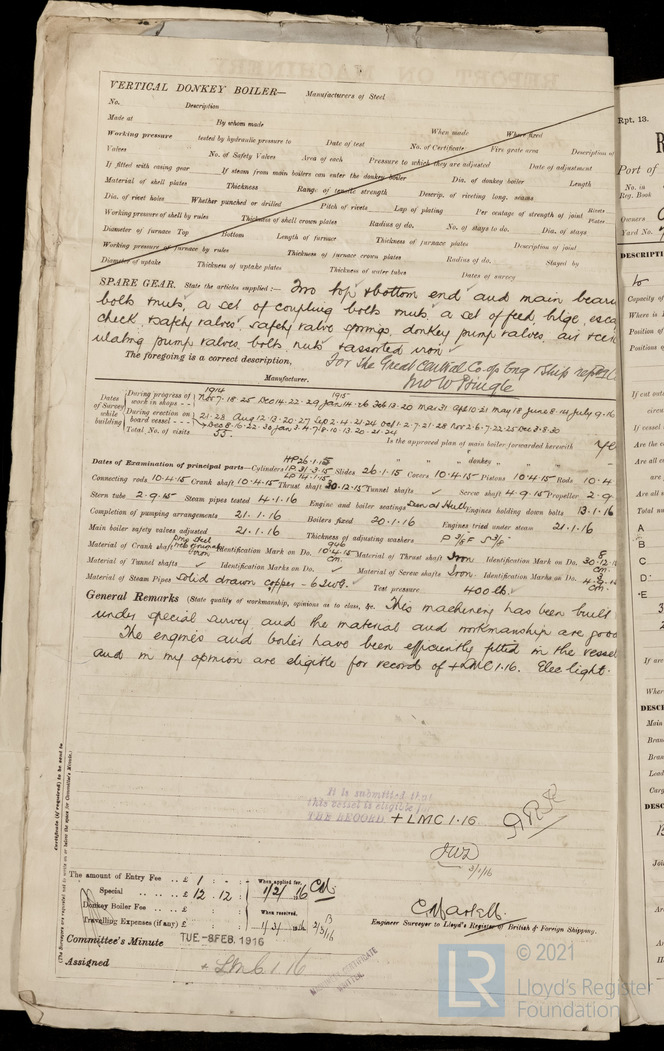 VERTICAL DONKEY BOILER— Manufacturers of Steel
No. Description
Made at By whom made When made Where fixed
Working pressure tested by hydraulic pressure to Date of test No. of Certificate Fire grate area Description of
Valves No. of Safety Valves Area of each Pressure to which they are adjusted Date of adjustment
If fitted with casing gear If steam from main boilers can enter the donkey boiler Dia. of donkey boiler Length
Material of shell plates Thickness Range of tensile strength Descrip. of riveting long. seams
Dia. of rivet holes Whether punched or drilled Pitch of rivets Lap of plating Per centage of strength of joint Rivets Plates
Working pressure of shell by rules Thickness of shell crown plates Radius of do. No. of stays to do. Dia. of stays
Diameter of furnace Top Bottom Length of furnace Thickness of furnace plates Description of joint
Working pressure of furnace by rules Thickness of furnace crown plates Radius of do. Stayed by
Diameter of uptake Thickness of uptake plates Thickness of water tubes Dates of survey
SPARE GEAR. State the articles supplied:— Two top & bottom end and main
bolts & nuts, a set of coupling bolts & nuts, a set of feed, bilge,
check, & safety valves, safety valve springs, donkey pump valves, air &
ulating pump valves, bolts, nuts & assorted iron
The foregoing is a correct description, For The Great Central Co-op Eng & Ship
Jno W Pringle
Manufacturer.
Dates of Survey while building
During progress of work in shops - - 1914 Nov. 7. 18. 25 Dec 14. 22. 29 1915 Jan 14. 26 Feb 13. 20 Mar 31 Apr 10. 21 May 18 June 8. 14 July 9. 16
During erection on board vessel - - - 21. 28 Aug 12. 13. 20. 27 Sep 2. 4. 21. 24 Oct 1. 2. 7. 21. 28 Nov 2. 6. 7. 22. 25 Dec 3. 8. 30
Total No. of visits 55.
Is the approved plan of main boiler forwarded herewith
" " " donkey " "
Dates of Examination of principal parts—Cylinders HP 26.1.15 IP 31.3.15 LP 14.1.15 Slides 26.1.15 Covers 10.4.15 Pistons 10.4.15 Rods 10.4
Connecting rods 10.4.15 Crank shaft 10.4.15 Thrust shaft 30.12.15 Tunnel shafts ✓ Screw shaft 4.9.15 Propeller 2.9
Stern tube 2.9.15 Steam pipes tested 14.1.16 Engine and boiler seatings Engines holding down bolts 13.1.16
Completion of pumping arrangements 21.1.16 Boilers fixed 20.1.16 Engines tried under steam 21.1.16
Main boiler safety valves adjusted 21.1.16 Thickness of adjusting washers P 3/8 F S 3/8
Material of Crank shaft Identification Mark on Do. 10.4.15 Material of Thrust shaft Iron Identification Mark on Do. 30.12.
Material of Tunnel shafts ✓ Identification Marks on Do. ✓ Material of Screw shafts Iron Identification Marks on Do.
Material of Steam Pipes Solid drawn copper - 6 SWG. Test pressure 400 lb.
General Remarks (State quality of workmanship, opinions as to class, &c. This machinery has been built
under special survey and the material and workmanship are good
The engines and boiler have been efficiently fitted in the vessel
and in my opinion are eligible for record of + LMC 1.16. Elec light.
It is submitted that
this vessel is eligible for
THE RECORD. + LMC 1.16.
Certificate (if required) to be sent to
(The Surveyors are requested not to write on or below the space for Committee's Minute.)
The amount of Entry Fee .. £ 1 : - : When applied for,
Special .. .. .. £ 12 . 12 : 1/2/16
Donkey Boiler Fee .. .. £ : : When received,
Travelling Expenses (if any) £ : :
C. Marlett.
Engineer Surveyor to Lloyd's Register of British & Foreign Shipping.
Committee's Minute TUE - 8 FEB. 1916
Assigned + LMC 1.16
© 2021
LR
Lloyd's Register
Foundation
Rpt. 13.
Port of
No. in
Reg. Book
Owners
Yard No.
DESCRIPTI
Capacity of
Where is
Position of
Position of
If cut out
circu
If vessel
Are the c
Are all c
are
Are all
Total nu
A
B
C
D
E
If are
Wher
DESC
Main
Bran
Bran
Lead
Carg
DESC